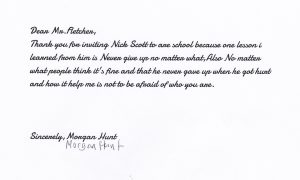 Dear Mr.Fletcher,
Thank you for inviting Nick Scott to are school because one lesson i
learned from him is Never give up no matter what,Also No matter
what people think it's fine and that he never gave up when he got hurt
and how it help me is not to be afraid of who you are.
Sincerely, Morgan Hunt
Morgan Hunt